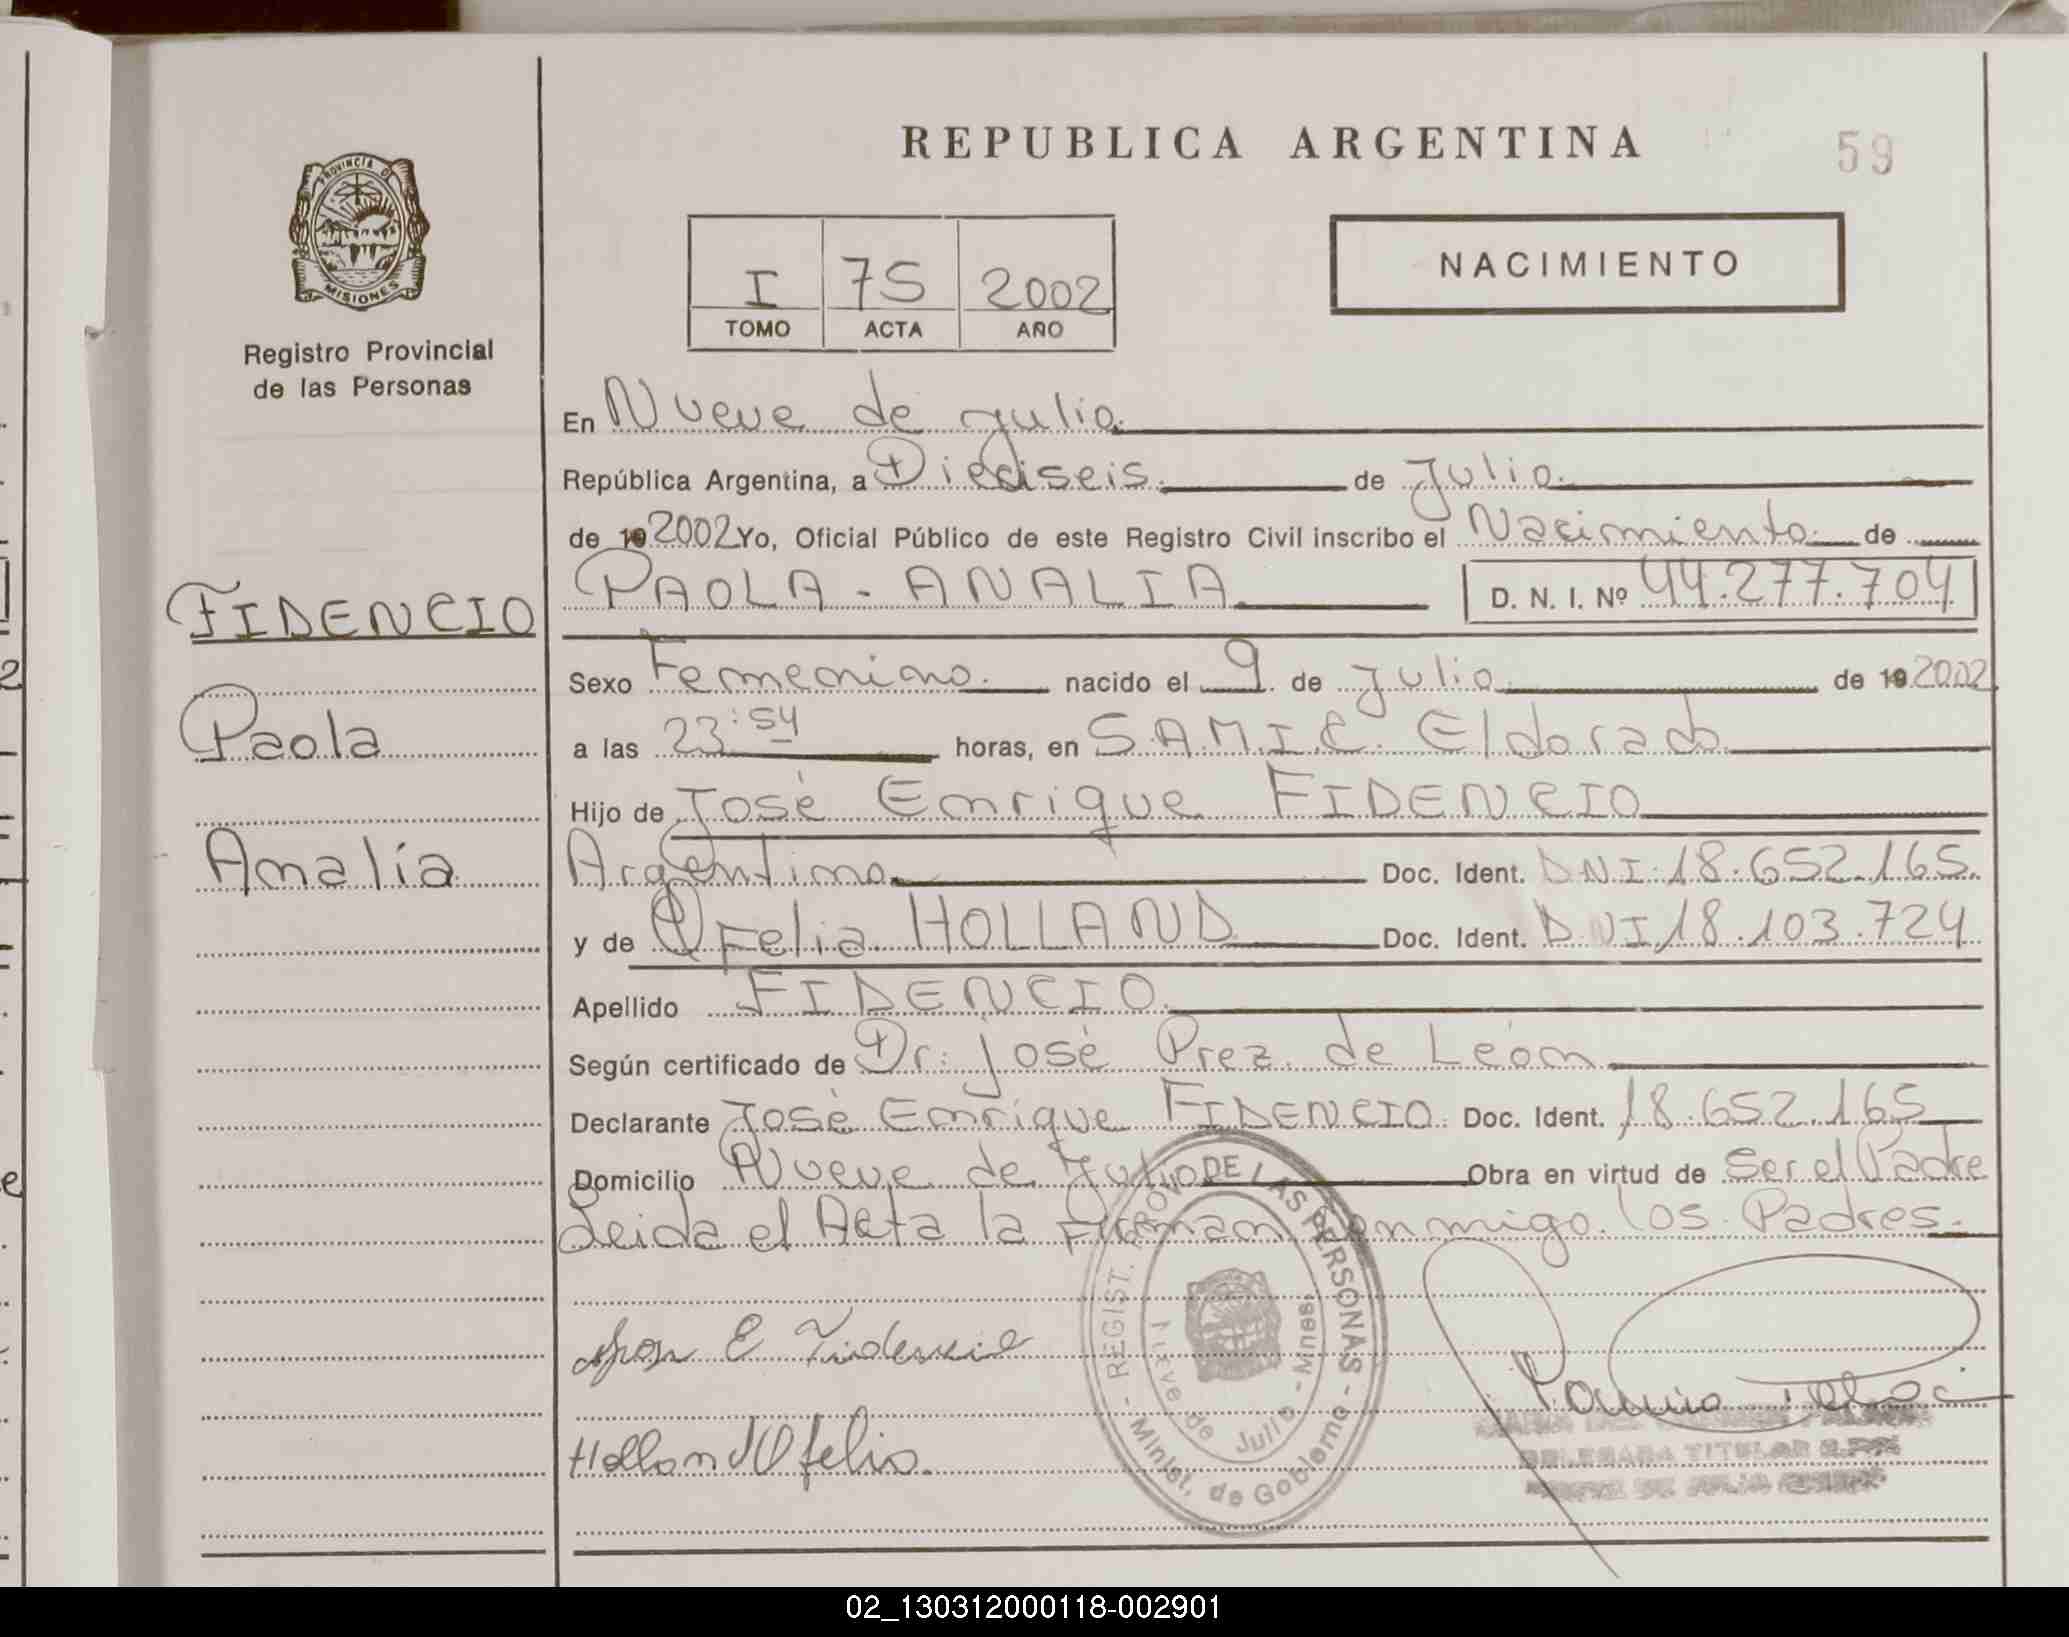 REPUBLICA ARGENTINA
59
PROVINCIA DE
MISIONES
Registro Provincial
de las Personas
I 75 2002
TOMO ACTA AÑO
NACIMIENTO
En Nueve de Julio.
República Argentina, a Dieciseis. de Julio.
de 19 2002 Yo, Oficial Público de este Registro Civil inscribo el Nacimiento de
FIDENCIO
PAOLA - ANALIA D. N. I. Nº 44.277.704
Sexo Femenino. nacido el 9 de Julio de 19 2002
Paola
a las 23:54 horas, en S.A.M.I.C. Eldorado
Hijo de José Enrique FIDENCIO
Analía
Argentino. Doc. Ident. DNI.18.652.165.
y de Ofelia HOLLAND Doc. Ident. DNI 18.103.724
Apellido FIDENCIO.
Según certificado de Dr. José Prez. de León
Declarante José Enrique FIDENCIO. Doc. Ident. 18.652.165
Domicilio Nueve de Julio Obra en virtud de Ser el Padre
Leida el Acta la Firman conmigo los Padres.
REGIST. PROV. DE LAS PERSONAS
Nueve de Julio - Mnes.
Minist. de Gobierno
E Fidencio
Holland Ofelia
DELEGADA TITULAR
02_130312000118-002901